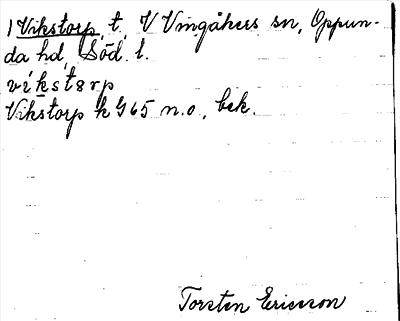 1 Vikstorp, t, V Vingåkers sn, Oppun-
da hd, Söd. l.
víkstɜrp
Vikstorp k G65 n.o., bek.
Torsten Ericsson